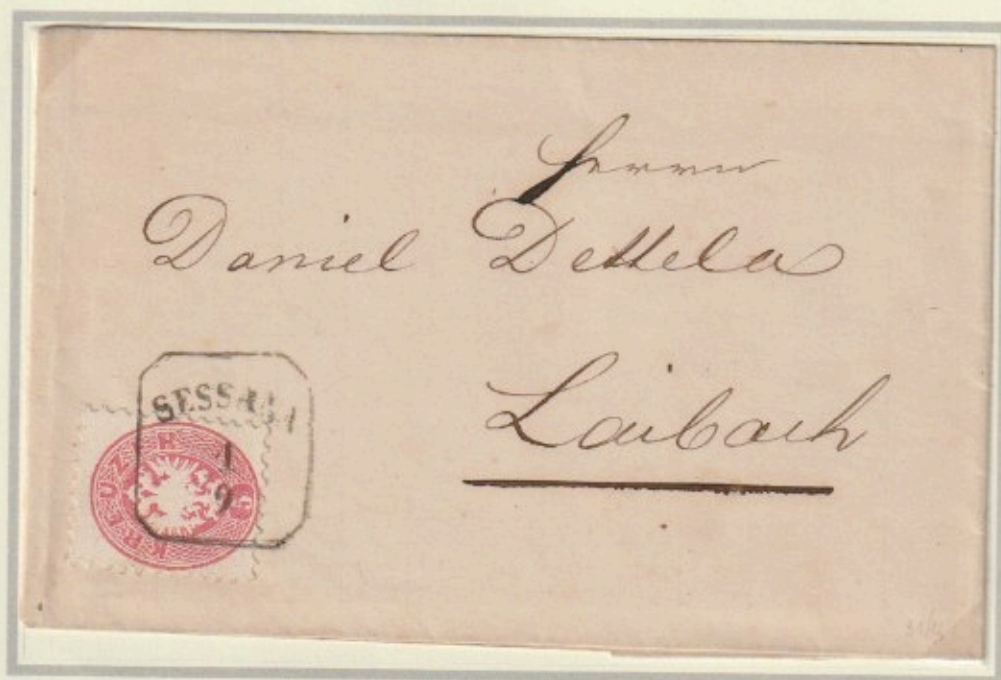 Herrn
Daniel Dettela
Laibach
SESSANA
1
9
5 KREUZER